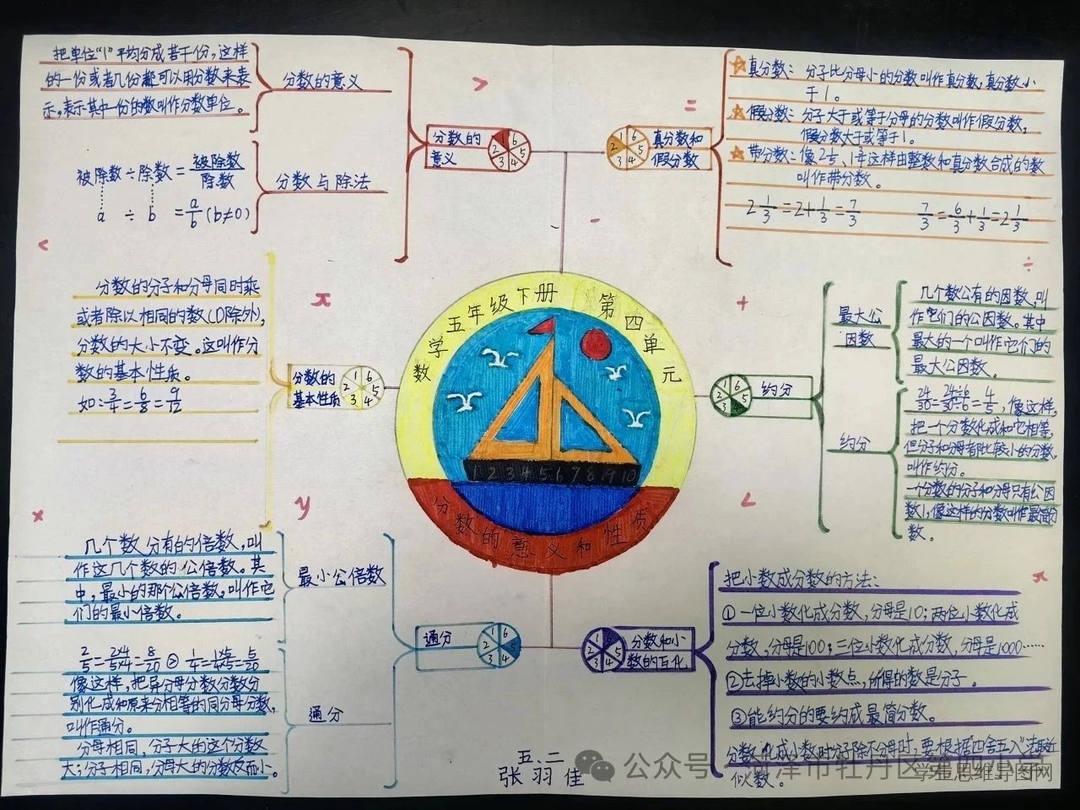 把单位“1”平均分成若干份,这样
的一份或者几份都可以用分数来表
示,表示其中一份的数叫作分数单位。
分数的意义
被除数÷除数=被除数/除数
a ÷ b = a/b (b≠0)
分数与除法
分数的
意义
1 2 3 4 5 6
真分数和
假分数
1 2 3 4 5 6
真分数:分子比分母小的分数叫作真分数,真分数小
于1。
假分数:分子大于或等于分母的分数叫作假分数,
假分数大于或等于1。
带分数:像
这样由整数和真分数合成的数
叫作带分数。
2 1/3 = 2 + 1/3 = 7/3
7/3 = 6/3 + 1/3 = 2 1/3
> = < - ÷ x + y < × x
分数的分子和分母同时乘
或者除以相同的数(0除外),
分数的大小不变。这叫作分
数的基本性质。
如:3/4=6/8=9/12
分数的
基本性质
1 2 3 4 5 6
数学五年级下册 第四单元
1 2 3 4 5 6 7 8 9 10
分数的意义和性质
1 2 3 4 5 6
约分
最大公
因数
几个数公有的因数,叫
作它们的公因数。其中
最大的一个叫作它们的
最大公因数。
约分
24/30=24÷6/30÷6=4/5,像这样,
把一个分数化成和它相等,
但分子和分母都比较小的分数,
叫作约分。
一个分数的分子和分母只有公因
数1,像这样的分数叫作最简分
数。
几个数分有的倍数,叫
作这几个数的公倍数。其
中,最小的那个公倍数,叫作它
们的最小倍数。
最小公倍数
通分
1 2 3 4 5 6
像这样,把异分母分数分数分
别化成和原来分相等的同分母分数,
叫作通分。
分母相同,分子大的这个分数
大;分子相同,分母大的分数反而小。
通分
1 2 3 4 5 6
分数和小
数的互化
把小数成分数的方法:
①一位小数化成分数,分母是10;两位小数化成
分数,分母是100;三位小数化成分数,分母是1000……
②去掉小数的小数点,所得的数是分子。
③能约分的要约成最简分数。
分数化成小数时分子除不分母时,要根据“四舍五入”
似数。
五.二
张羽佳
公众号
泽市牡丹区
学霸思维导图网